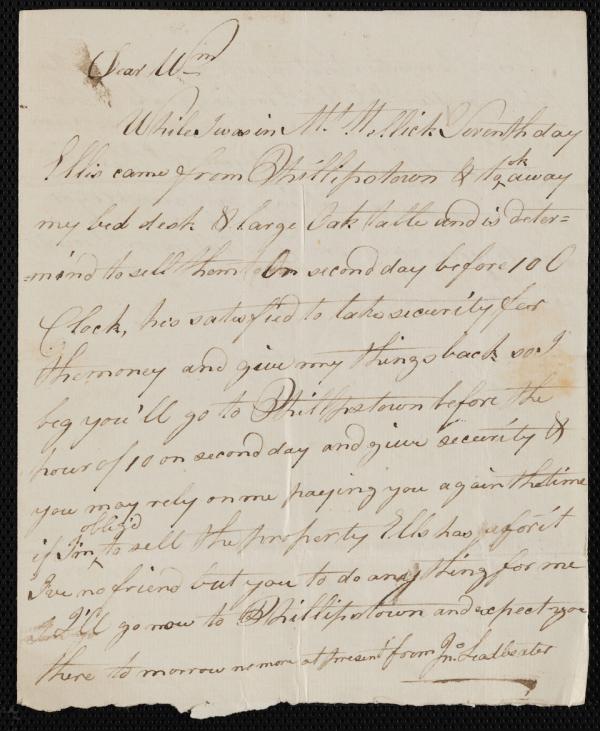 Dear Wm
While I was in Mt Mellick Seventh day
Ellis came from Phillipstown & took away
my bed desk & large Oak table and is deter=
=mind to sell them On second day before 10 O
Clock, his satisfied to take security for
the money and give my things back so I
beg you'll go to Phillipstown before the
hour of 10 on second day and give security &
you may rely on me paying you again the time
if I'm oblig'd to sell the property Ells has for it
I've no friend but you to do any thing for me
I'll go now to Phillipstown and expect you
there to morrow no more at present from Jno